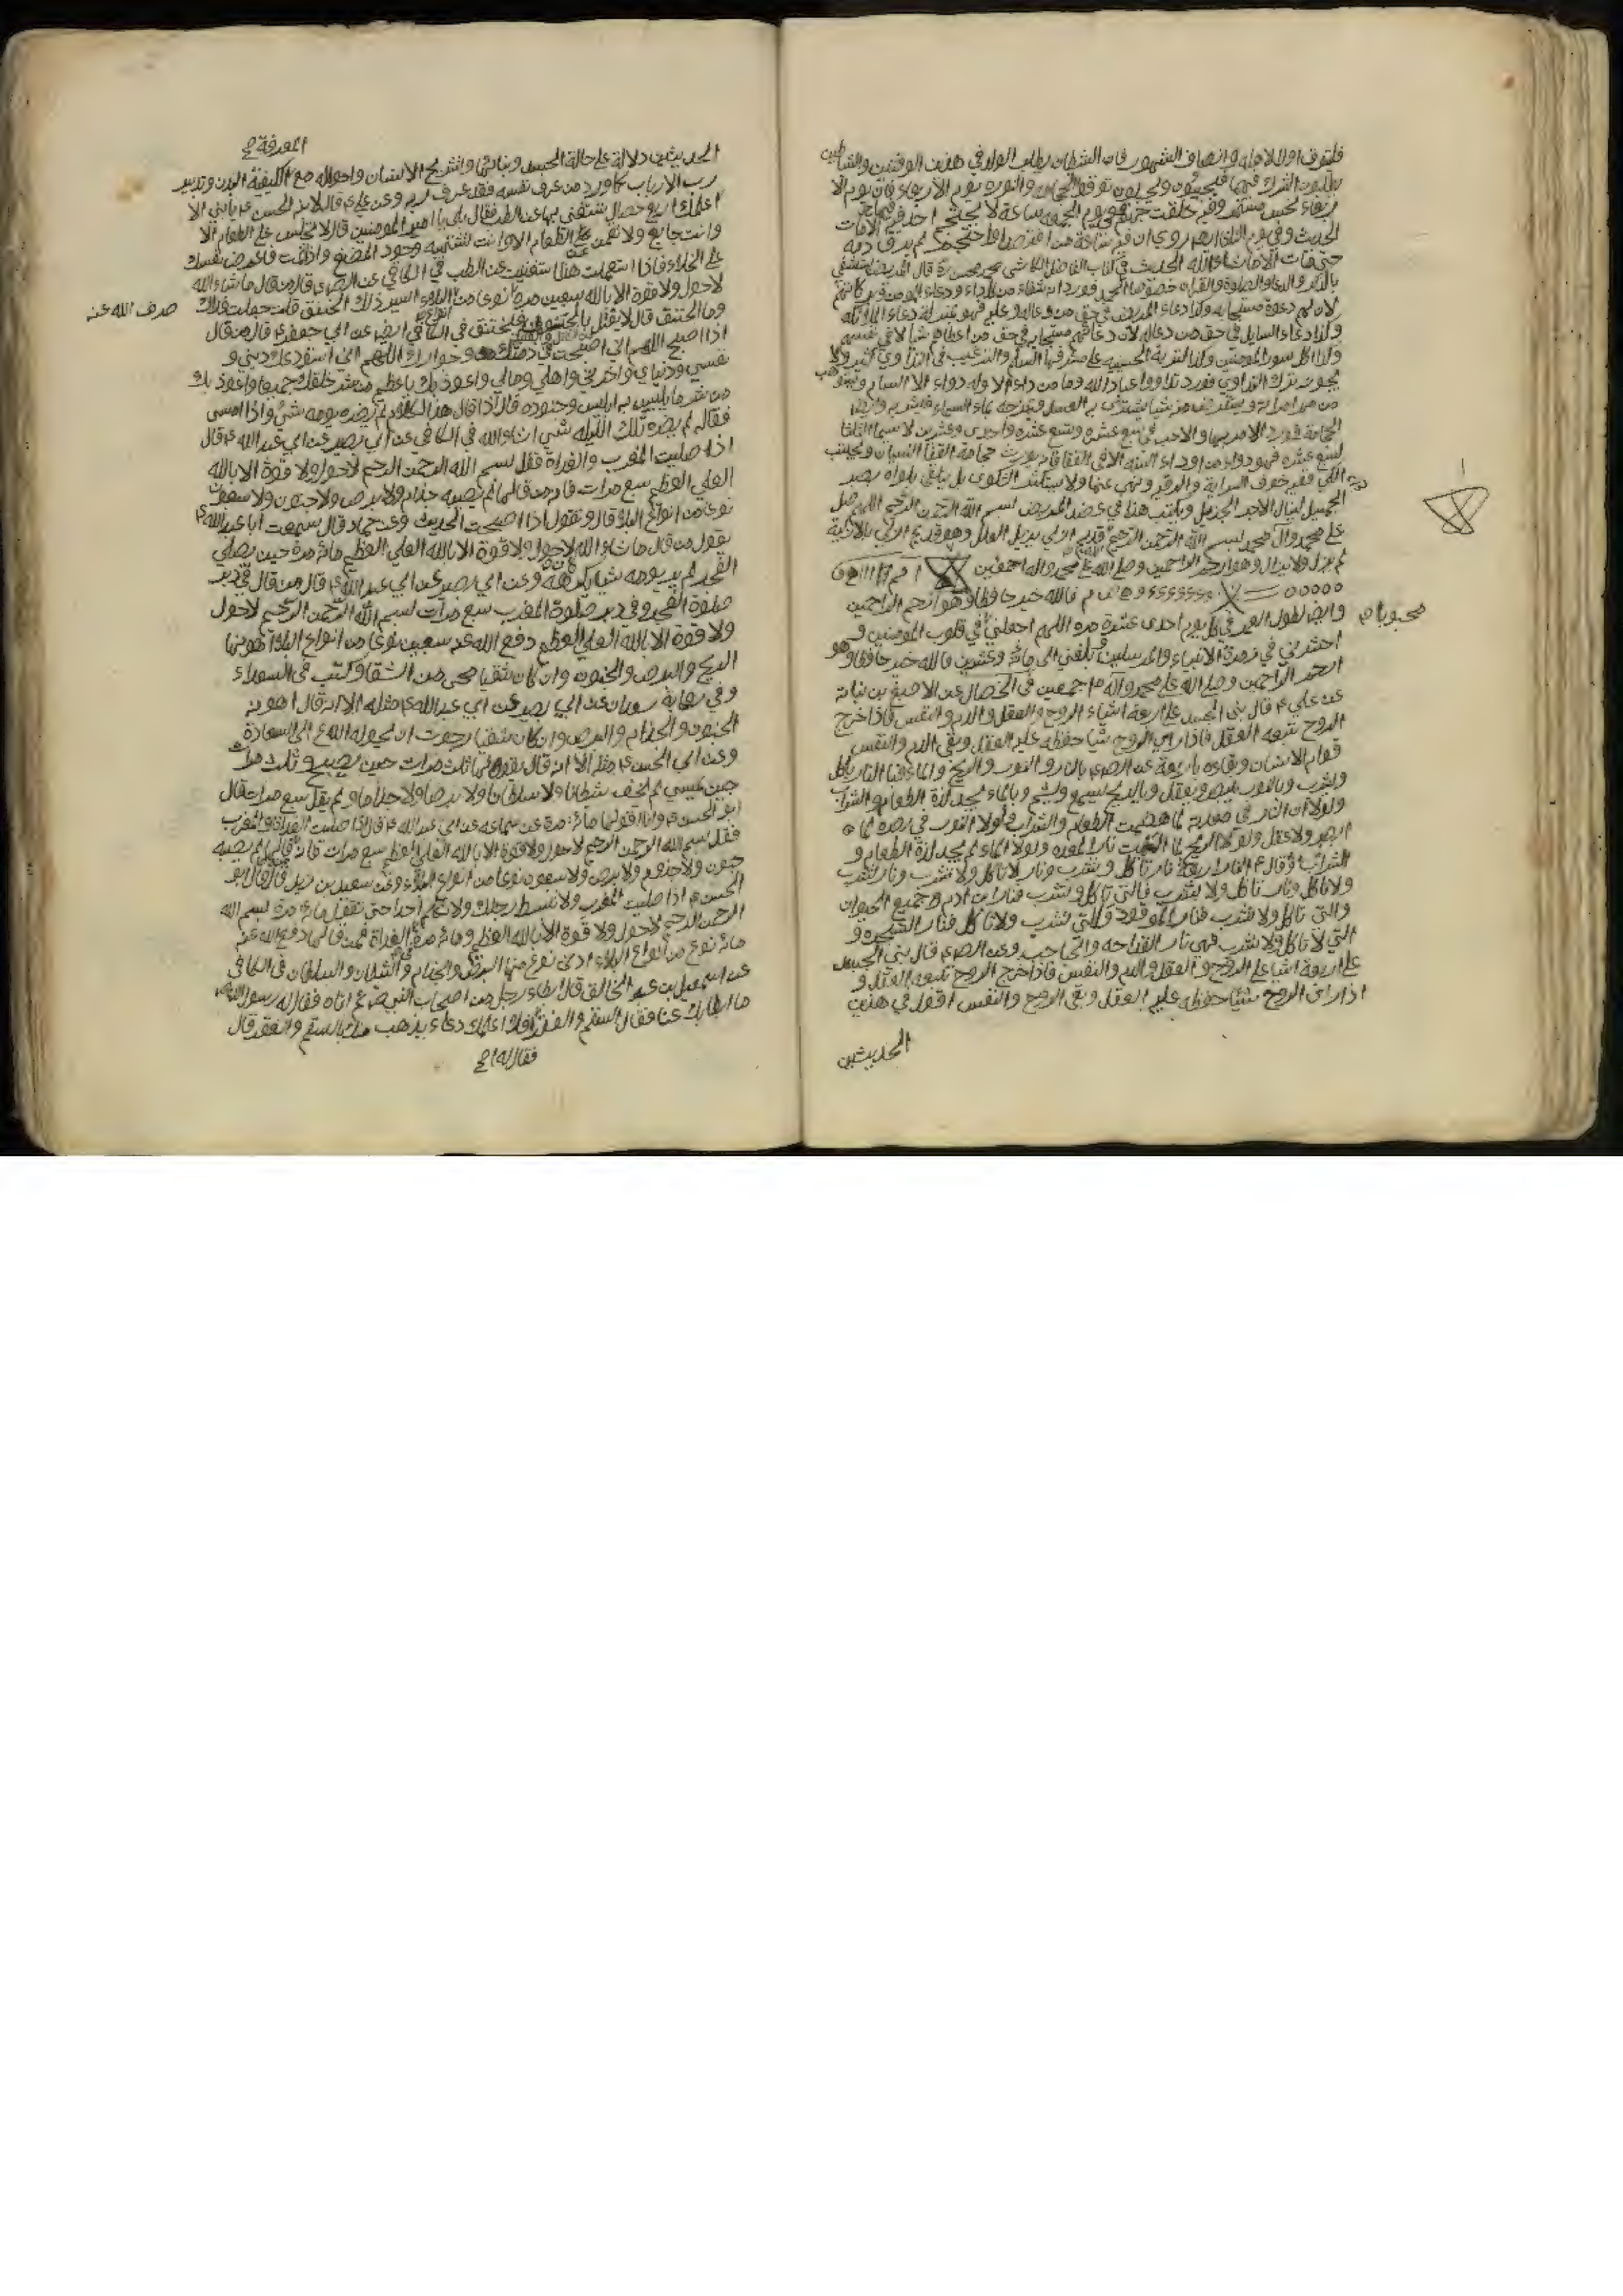 فليترك اول الاهلة وانصاف الشهور فان الشيطان يطلب الولد في هذين الوقتين والشياطين
يطلبون الشرك فيهما فيجيئون ويحبلون توقوا الحجامة والنورة يوم الاربعاء فان يوم الا
ربعاء نحس مستمر وفيه خلقت جهنم وفي يوم الجمعة ساعة لا يحتجم احد فيها الا مات
الحديث وفي يوم روي ان فيه ساعة من
حتى مات الا ما شاء الله الحديث في كتاب الفاضل الكاشي محمد محسن ره قال المريض يستشفي
بالذكر والدعاء والصلوة والقران خصوصا الحمد فورد انه شفاء من كل داء ودعاء المومن
لان لهم دعوة مستجابة وكذا دعاء المريض في حق من دعا له
وكذا دعاء السايل في حق من دعا له لان دعائهم مستجاب في حق من اعطاه شيا لا في نفسهم
وكذا اكل سور المومنين وكذا التربة الحسينية على مشرفها السلم والترغيب في التداوي كثير ولا
يجوز ترك التداوي فورد تداووا عباد الله وما من داء الا وله دواء الا السام
من مهر امراته شيا يشتري به العسل ويمزجه بماء السماء فيشربه
الحجامة فورد الامر بها والاحب في سبع عشرة وتسع عشرة واحدى وعشرين لا سيما الثلاثا
لسبع عشرة فهو دواء من ادواء السنة الا في القفا فانه يورث حجامة القفا النسيان ويجتنب
الكي ففيه خوف السراية ونهي عنها ولا يستكثر الشكوى بل يلقي بلواه بصبر
الجميل لينال الاجر الجزيل ويكتب هذا في عضد المريض بسم الله الرحمن الرحيم اللهم صل
على محمد وآل محمد بسم الله الرحمن الرحيم قديم ازلي يزيل العلل وهو قديم ازلي بالازلية
لم يزل ولا يزال وهو ارحم الراحمين وصلى الله على محمد واله اجمعين
فالله خير حافظا وهو ارحم الراحمين
وايض لطول العمر في كل يوم احدى عشرة مرة اللهم اجعلني في قلوب المومنين و
محبوبا م
احشرني في زمرة الانبياء والمرسلين وبلغني الى مائة وعشرين فالله خير حافظا وهو
ارحم الراحمين وصلى الله على محمد وآله اجمعين في الخصال عن الاصبغ بن نباتة
عن علي ع قال بني الجسد على اربعة اشياء الروح والعقل والدم والنفس فاذا خرج
الروح تبعه العقل فاذا راى الروح شيا حفظه عليه العقل وبقي الدم والنفس
قوام الانسان وبقاءه باربعة عن الصادق ع بالنار والنور والريح والماء فبا النار ياكل
ويشرب وبالنور يبصر ويعقل وبالريح يسمع ويشم وبالماء يجد لذة الطعام والشراب
ولولا ان النار في معدته لما هضمت الطعام والشراب ولولا النور في بصره لما
ابصر ولا عقل ولولا الريح لما التهبت نار المعدة ولولا الماء لم يجد لذة الطعام و
الشراب وقال ع النار اربعة نار تاكل وتشرب ونار لا تاكل ولا تشرب ونار تشرب
ولا تاكل ونار تاكل ولا تشرب فالتي تاكل وتشرب فنار ابن ادم وجميع الحيوان
والتي تاكل ولا تشرب فنار الموقود والتي تشرب ولا تاكل فنار الشجرة و
التي لا تاكل ولا تشرب فهي نار القداحة والحباحب وعن الص ع قال بني الجسد
على اربعة اشيا على الروح والعقل والدم والنفس فاذا خرج الروح تبعه العقل و
اذا راى الروح شيئا حفظه عليه العقل وبقي الروح والنفس اقول في هذين
الحديثين
المعرفة ح
الحديثين دلالة على حالة الجسد وبنائها وتشريح الانسان واحواله مع الكيفية البدن وتدبير
رب الارباب كما ورد من عرف نفسه فقد عرف ربه وعن علي ع قال لابنه الحسن ع يا بني الا
اعلمك اربع خصال تستغني بها عن الطب فقال بلى يا امير المومنين قال لا تجلس على الطعام الا
وانت جايع ولا تقم عن الطعام الا وانت تشتهيه وجود المضغ واذا نمت فاعرض نفسك
على الخلاء فاذا استعملت هذا استغنيت عن الطب في الكافي عن الص ع قال من قال ما شاء الله
لاحول ولا قوة الا بالله سبعين مرة
صرف الله عنه
نوعا من البلاء ايسر ذلك الخنق قلت جعلت فداك
وما الخنق قال لا يعتل بالجنون فيخنق في الكافي ايض عن ابي جعفر ع قال من قال
اذا اصبح اللهم اني اصبحت في ذمتك وجوارك اللهم اني استودعك ديني و
نفسي ودنياي واخرتي واهلي ومالي واعوذ بك يا عظيم من شر خلقك جميعا واعوذ بك
من شر ما يلبس به ابليس وجنوده قال اذا قال هذا الكلام لم يضره يومه شيء واذا امسى
فقاله لم يضره تلك الليلة شي انشاء الله في الكافي عن ابي بصير عن ابي عبد الله ع قال
اذا صليت المغرب والغداة فقل بسم الله الرحمن الرحيم لاحول ولا قوة الا بالله
العلي العظيم سبع مرات فانه من قالها لم يصبه جذام ولا برص ولا جنون ولا سبعون
نوعا من انواع البلاء قال وتقول اذا اصبحت الحديث وعن حماد قال سمعت ابا عبد الله ع
يقول من قال ما شاء الله لاحول ولا قوة الا بالله العلي العظيم مائة مرة حين يصلي
الفجر لم ير يومه شيا يكرهه وعن ابي بصير عن ابي عبد الله ع قال من قال في دبر
صلوة الفجر وفي دبر صلوة المغرب سبع مرات بسم الله الرحمن الرحيم لاحول
ولا قوة الا بالله العلي العظيم دفع الله عنه سبعين نوعا من انواع البلاء اهونها
الريح والبرص والجنون وان كان شقيا محي من الشقاء وكتب في السعداء
وفي رواية سعدان عن ابي بصير عن ابي عبد الله ع مثله الا انه قال اهونه
الجنون والجذام والبرص وان كان شقيا رجوت ان يحوله الله ع الى السعادة
وعن ابي الحسن ع مثله الا انه قال يقولها ثلث مرات حين يصبح وثلث مرات
حين يمسي لم يخف شيطانا ولا سلطانا ولا برصا ولا جذاما ولم يقل سبع مرات قال
ابو الحسن ع وانا اقولها مائة مرة عن سماعة عن ابي عبد الله ع قال اذا صليت الغداة والمغرب
فقل بسم الله الرحمن الرحيم لاحول ولا قوة الا بالله العلي العظيم سبع مرات فانه من قالها لم يصبه
جنون ولا جذام ولا برص ولا سبعون نوعا من انواع البلاء وعن سعيد بن زيد قال قال ابو
الحسن ع اذا صليت المغرب فلا تبسط رجلك ولا تكلم احدا حتى تقول مائة مرة بسم الله
الرحمن الرحيم لاحول ولا قوة الا بالله العلي العظيم ومائة مرة في الغداة فمن قالها دفع الله عنه
مائة نوع من انواع البلاء ادنى نوع منها البرص والجذام والشيطان والسلطان في الكافي
عن اسمعيل بن عبد الخالق قال ابطاء رجل من اصحاب النبي ص ثم اتاه فقال له رسول الله ص
ما ابطا بك عنا فقال السقم والفقر افلا اعلمك دعاء يذهب عنك بالسقم والفقر قال
فقال له ح